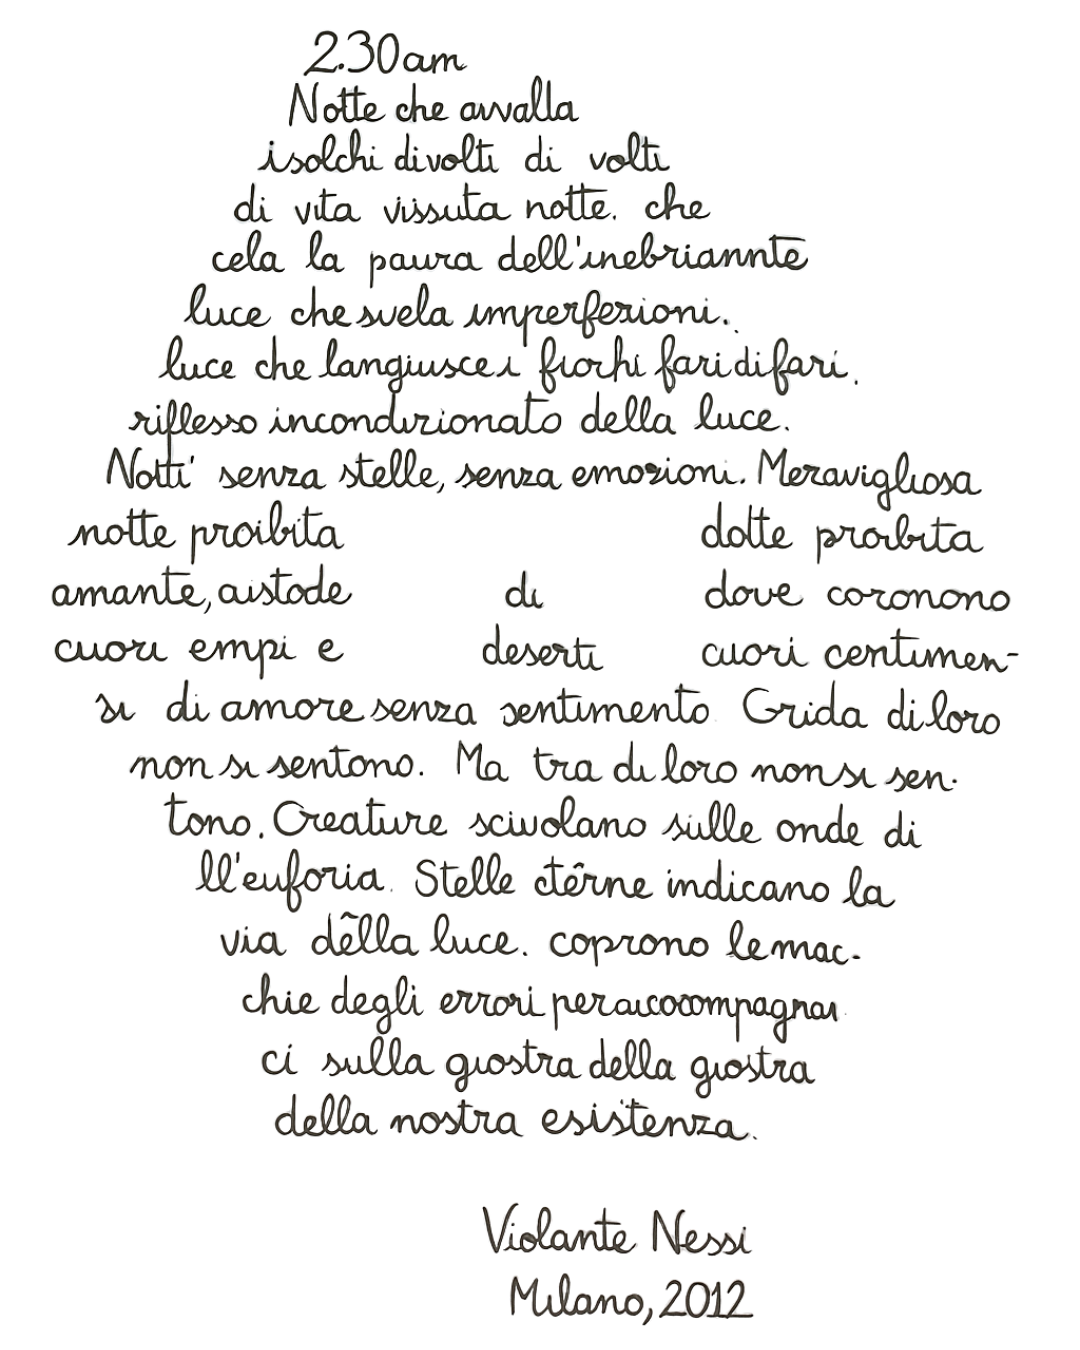 2.30am
Notte che avvalla
i solchi divolti di volti
di vita vissuta notte. che
cela la paura dell'inebriannte
luce che svela imperfezioni.
luce che langiusce i fiochi fari di fari.
riflesso incondizionato della luce.
Notti' senza stelle, senza emozioni. Meravigliosa
notte proibita dotte proibita
amante, aistode di dove coronono
cuori empi e deserti cuori centimen-
si di amore senza sentimento Grida di loro
non si sentono. Ma tra di loro non si sen-
tono. Creature scivolano sulle onde di
ll'euforia. Stelle etêrne indicano la
via dẽlla luce. coprono le mac-
chie degli errori per
ci sulla giostra della giostra
della nostra esistenza.
Violante Nessi
Milano, 2012